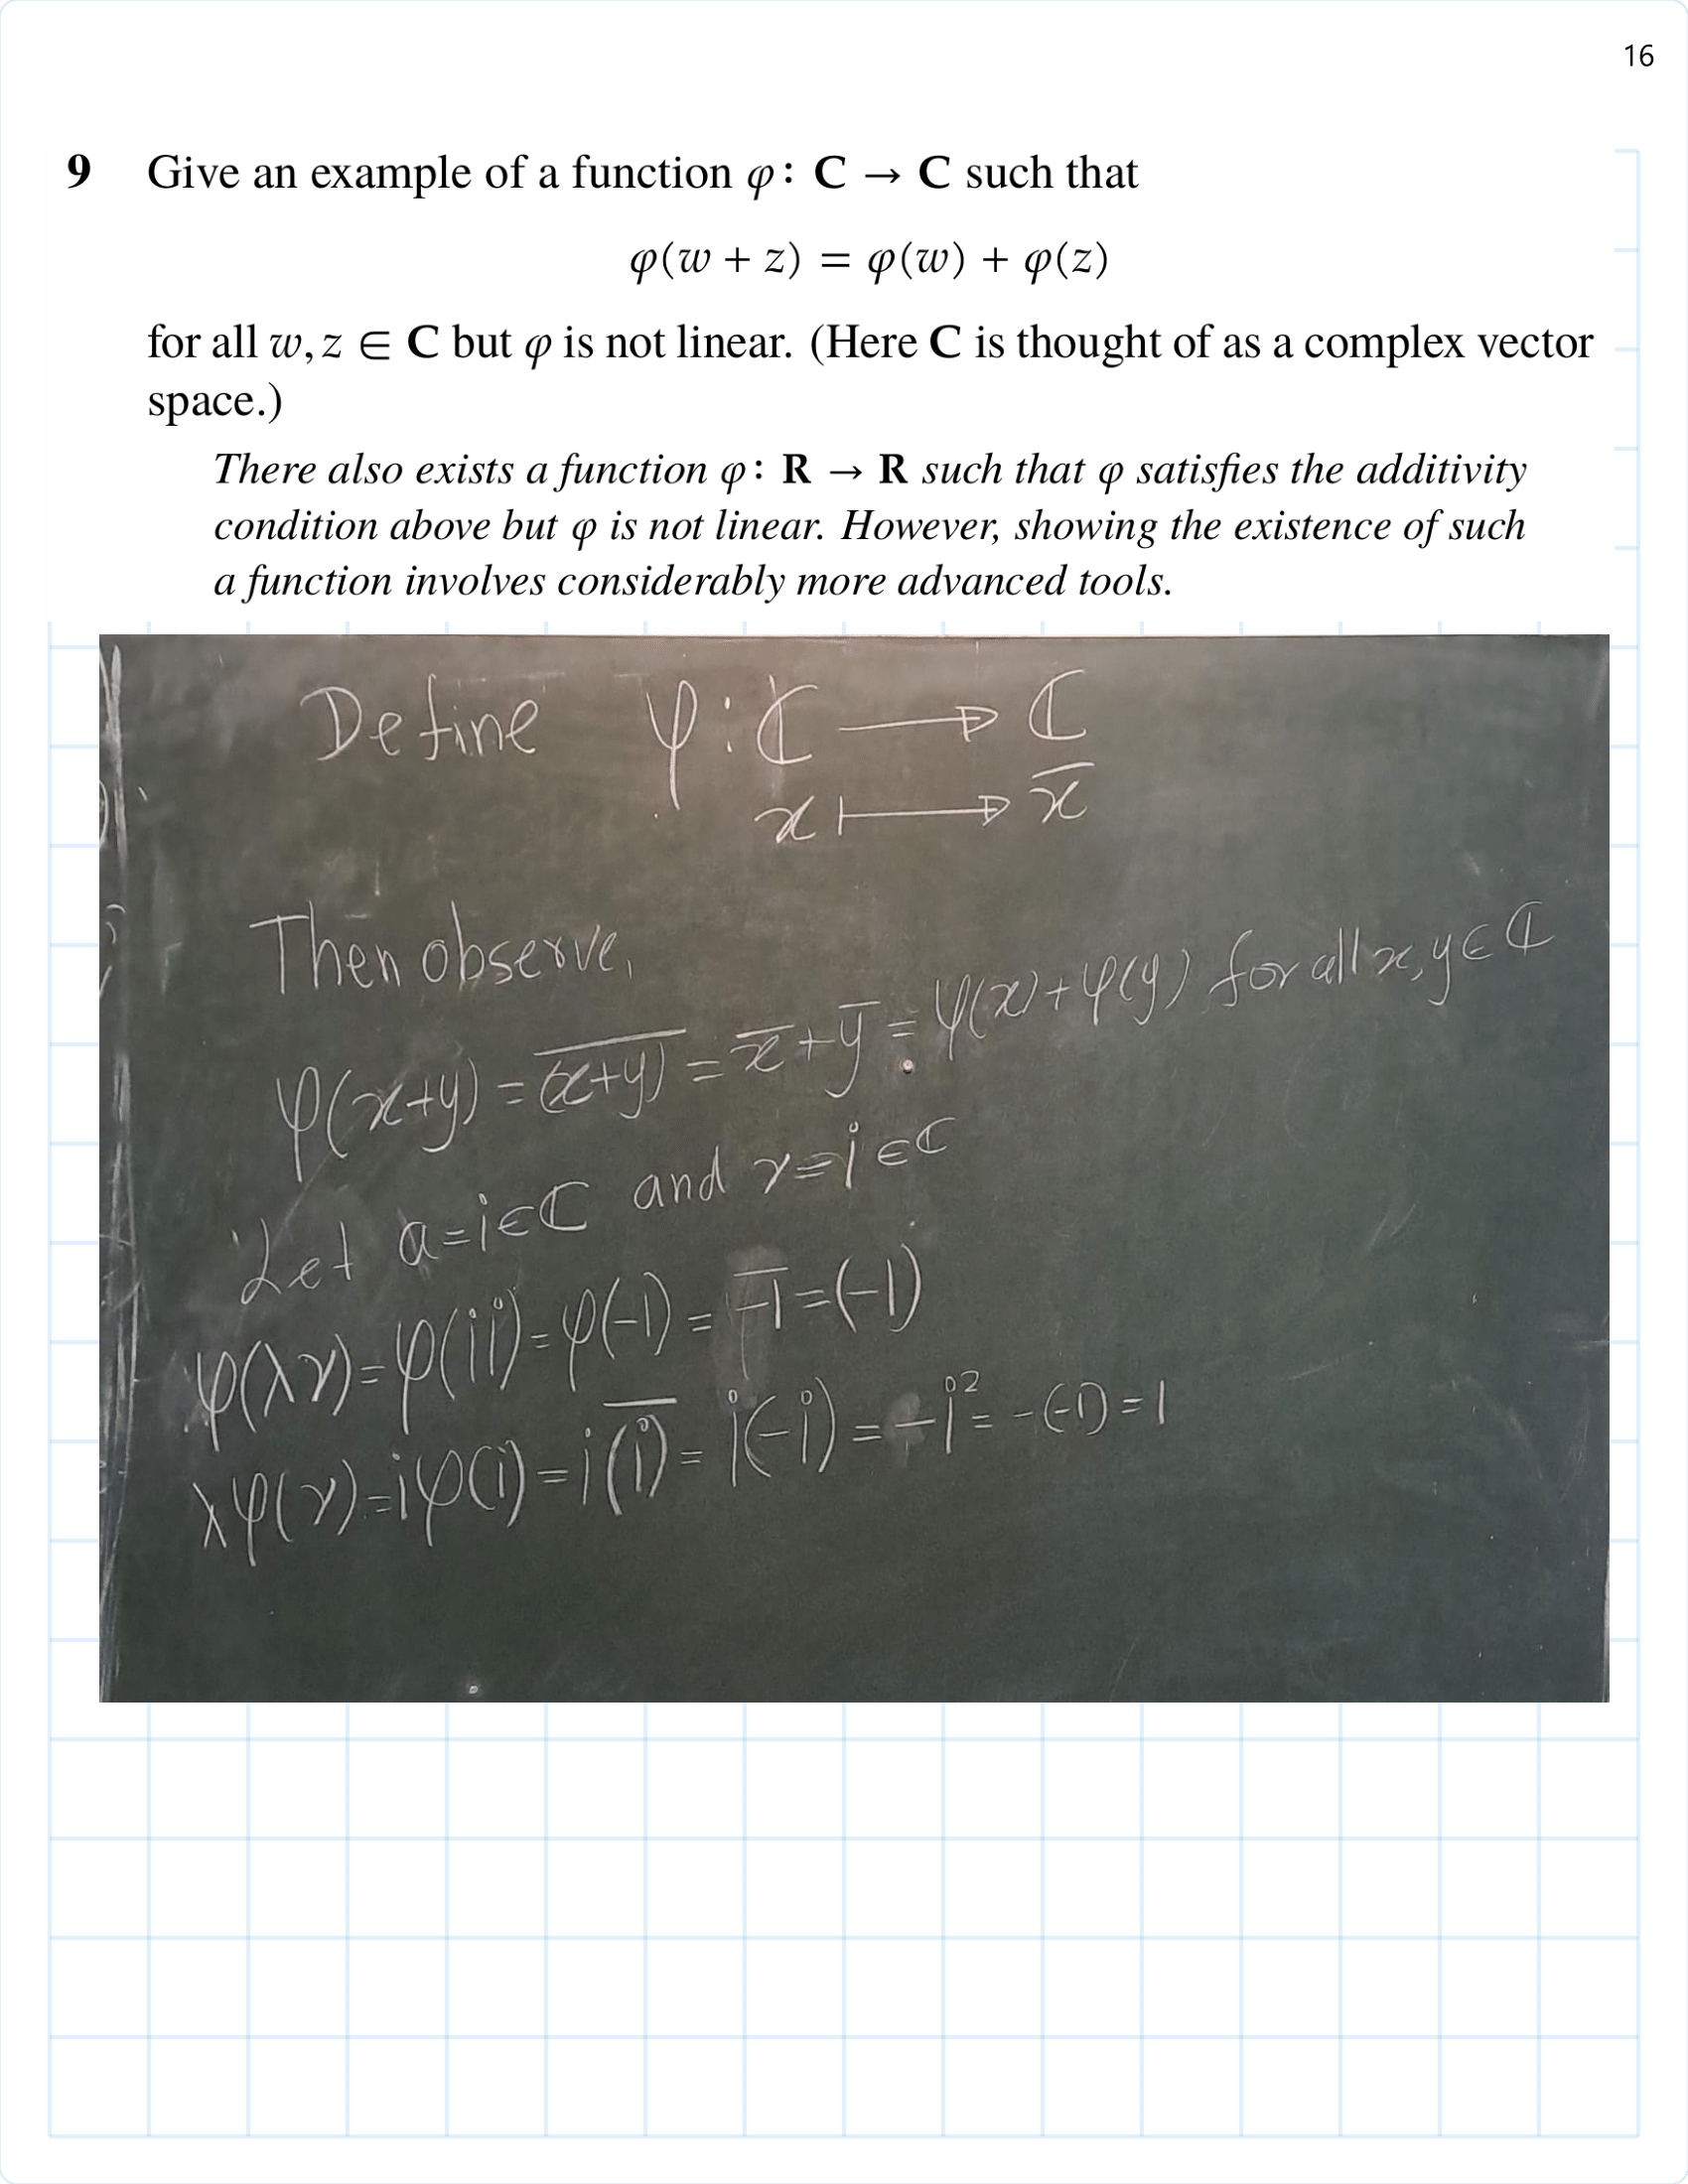 16
9 Give an example of a function φ: C → C such that
φ(w + z) = φ(w) + φ(z)
for all w, z ∈ C but φ is not linear. (Here C is thought of as a complex vector
space.)
There also exists a function φ: R → R such that φ satisfies the additivity
condition above but φ is not linear. However, showing the existence of such
a function involves considerably more advanced tools.
Define φ : ℂ → ℂ
x ↦ x̅
Then observe,
φ(x+y) = \overline{(x+y)} = x̅ + y̅ = φ(x)+φ(y) for all x, y ∈ ℂ
Let a=i∈ℂ and v=i∈ℂ
φ(λv)=φ(ii)=φ(-1)=\overline{-1}=(-1)
λφ(v)=iφ(i)=i\overline{(i)}=i(-i)=-i²=-(-1)=1